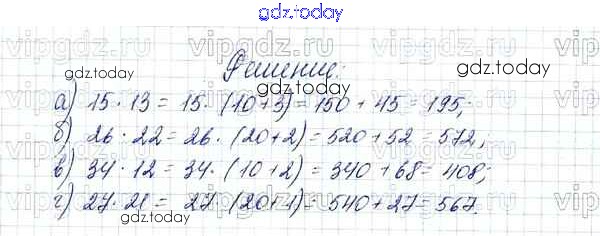 gdz.today
vipgdz.ru vipgdz.ru vipgdz.ru
Решение:
gdz.today gdz.today
а) 15 · 13 = 15 · (10+3) = 150 + 45 = 195;
б) 26 · 22 = 26 · (20+2) = 520 + 52 = 572;
в) 34 · 12 = 34 · (10+2) = 340 + 68 = 408;
г) 27 · 21 = 27 · (20+1) = 540 + 27 = 567.
gdz.today gdz.today